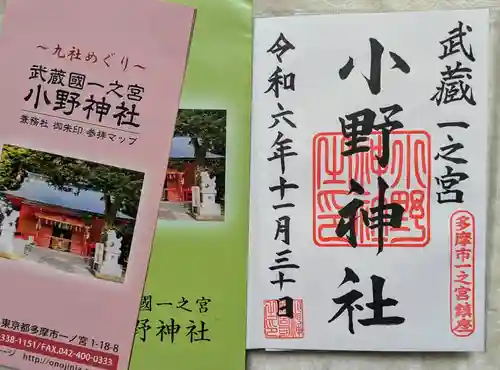 ～九社めぐり～
武蔵國一之宮
小野神社
兼務社 御朱印・参拝マップ
東京都多摩市一ノ宮 1-18-8
338-1151/FAX.042-400-0333
ージ〉 http://onojinja
國一之宮
野神社
武蔵一之宮
小野神社
令和六年十一月三十日
小野神社之印
多摩市一之宮鎮座